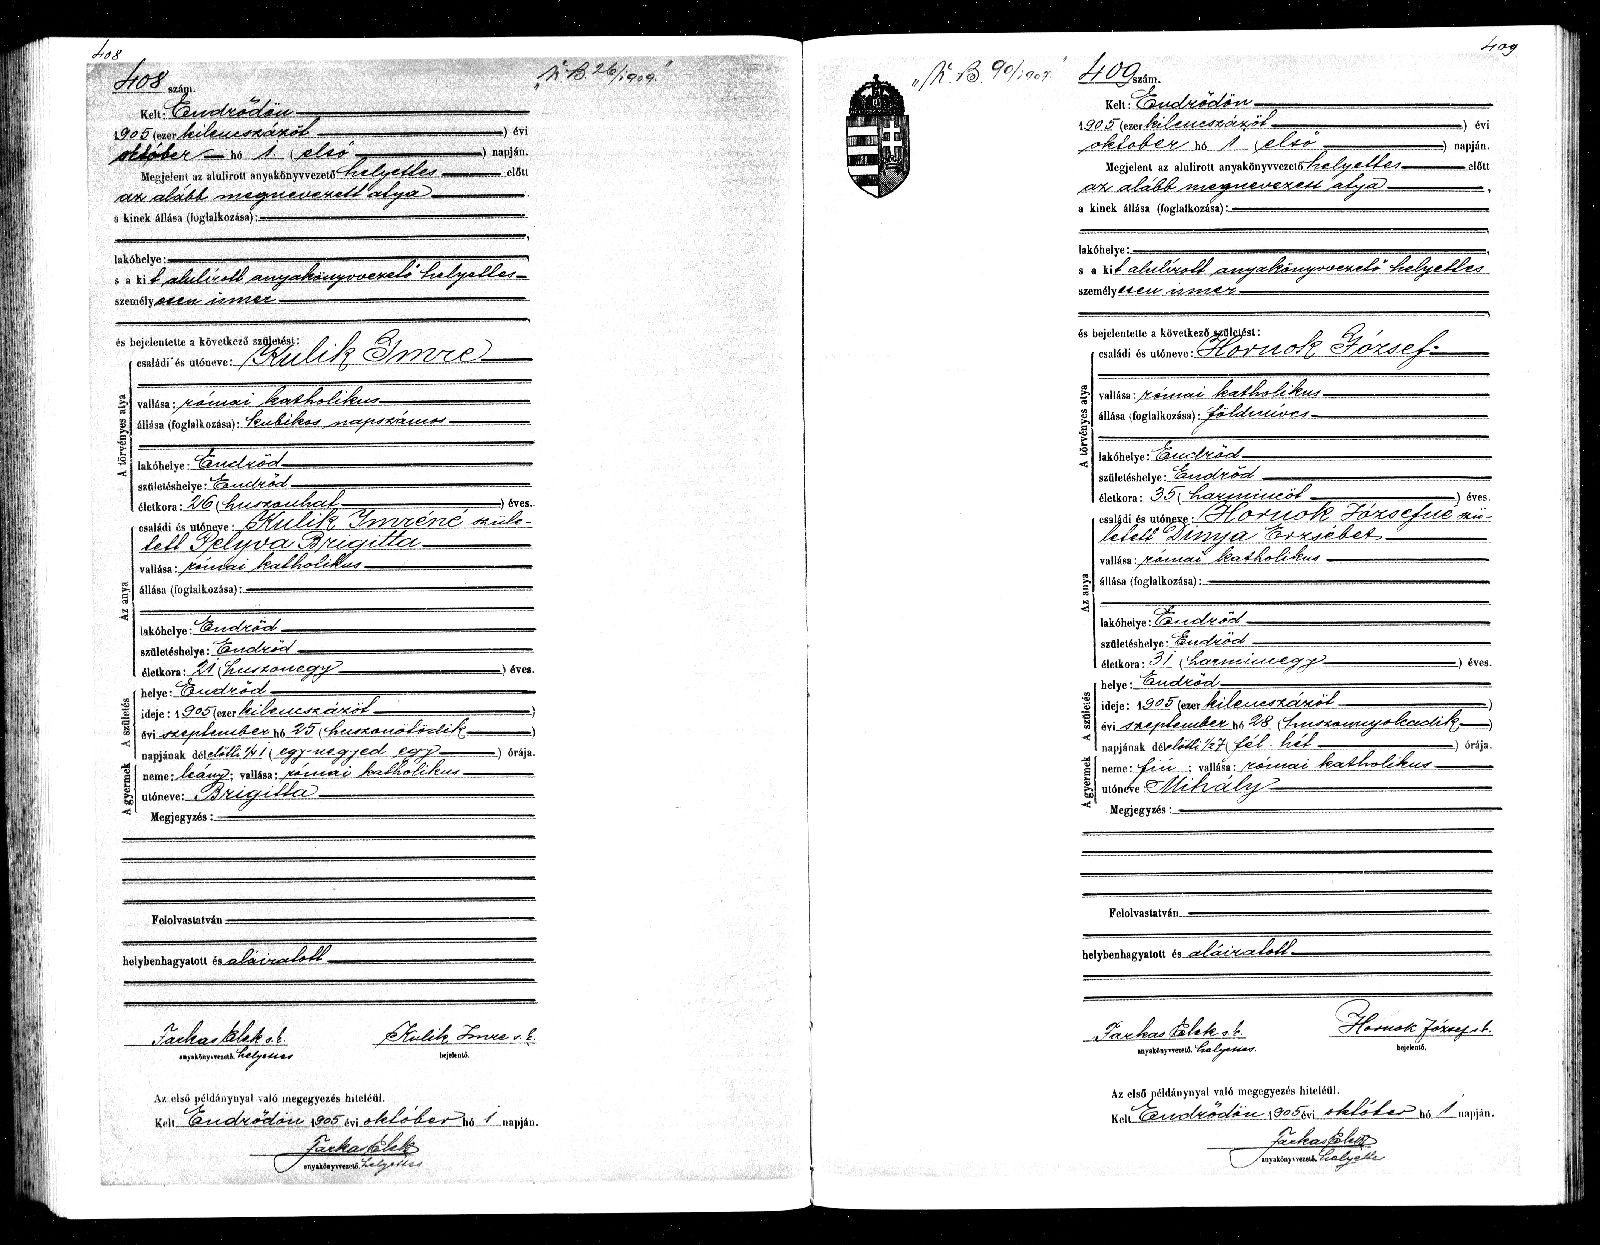 408
408 szám.
Kelt: Endrődön
1905 (ezer kilencszázöt ) évi
október hó 1. ( első ) napján.
Megjelent az alulirott anyakönyvvezető helyettes előtt
az alább megnevezett atya
a kinek állása (foglalkozása):
lakóhelye:
s a kit alulirott anyakönyvvezető helyettes
személyesen ismer
és bejelentette a következő születést:
A törvényes atya
családi és utóneve: Kulik Imre
vallása: római katholikus
állása (foglalkozása): kubikos napszámos
lakóhelye: Endrőd
születéshelye: Endrőd
életkora: 26 (huszonhat ) éves.
Az anya
családi és utóneve: Kulik Imréné szüle-
tett Pelyva Brigitta
vallása: római katholikus
állása (foglalkozása):
lakóhelye: Endrőd
születéshelye: Endrőd
életkora: 21 (huszonegy ) éves.
A születés
helye: Endrőd
ideje: 1905 (ezer kilencszázöt )
évi szeptember hó 25 (huszonötödik )
napjának délelőtti 1/4 1 ( egy negyed egy ) órája.
A gyermek
neme: leány; vallása: római katholikus
utóneve: Brigitta
Megjegyzés:
Felolvastatván
helybenhagyatott és aláiratott
Farkas Elek s.k. Kulik Imre s. k.
anyakönyvvezető. helyettes bejelentő.
Az első példánynyal való megegyezés hiteléül.
Kelt Endrődön 1905 évi október hó 1 napján.
Farkas Elek
anyakönyvvezető. helyettes
409
409 szám.
Kelt: Endrődön
1905 (ezer kilencszázöt ) évi
oktober hó 1 ( első ) napján.
Megjelent az alulirott anyakönyvvezető helyettes előtt
az alább megnevezett atya
a kinek állása (foglalkozása):
lakóhelye:
s a kit alulirott anyakönyvvezető helyettes
személyesen ismer
és bejelentette a következő születést:
A törvényes atya
családi és utóneve: Hornok József
vallása: római katholikus
állása (foglalkozása): földmíves
lakóhelye: Endrőd
születéshelye: Endrőd
életkora: 35 (harmincöt ) éves.
Az anya
családi és utóneve: Hornok Józsefné szü-
letett Dinya Erzsébet
vallása: római katholikus
állása (foglalkozása):
lakóhelye: Endrőd
születéshelye: Endrőd
életkora: 31 (harmincegy ) éves.
A születés
helye: Endrőd
ideje: 1905 (ezer kilencszázöt )
évi szeptember hó 28 (huszonnyolcadik )
napjának délelőtti 1/2 7 ( fél hét ) órája.
A gyermek
neme: fiú ; vallása: római katholikus
utóneve Mihály
Megjegyzés:
Felolvastatván
helybenhagyatott és aláiratott
Farkas Elek s.k. Hornok József s.k.
anyakönyvvezető. helyettes bejelentő.
Az első példánynyal való megegyezés hiteléül.
Kelt Endrődön 1905 évi október hó 1 napján.
Farkas Elek
anyakönyvvezető. helyette